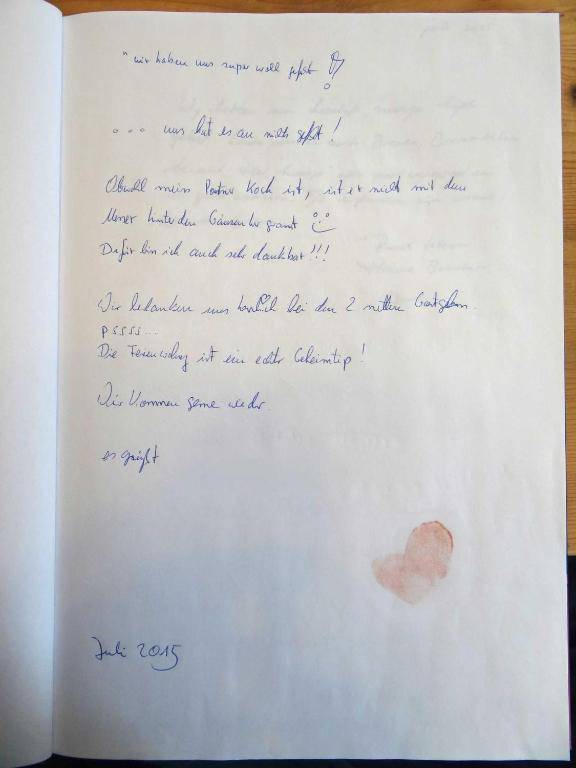 "wir haben uns super wohl gefühlt!
... uns hat es an nichts gefehlt!
Obwohl mein Partner Koch ist, ist er nicht mit dem
Messer hinter den Gänsen her gerannt
Dafür bin ich auch sehr dankbar!!!
Wir bedanken uns herzlich bei den 2 netten Gastgebern.
pssss...
Die Ferienwohnung ist ein echter Geheimtip!
Wir kommen gerne wieder.
es grüßt
Juli 2015